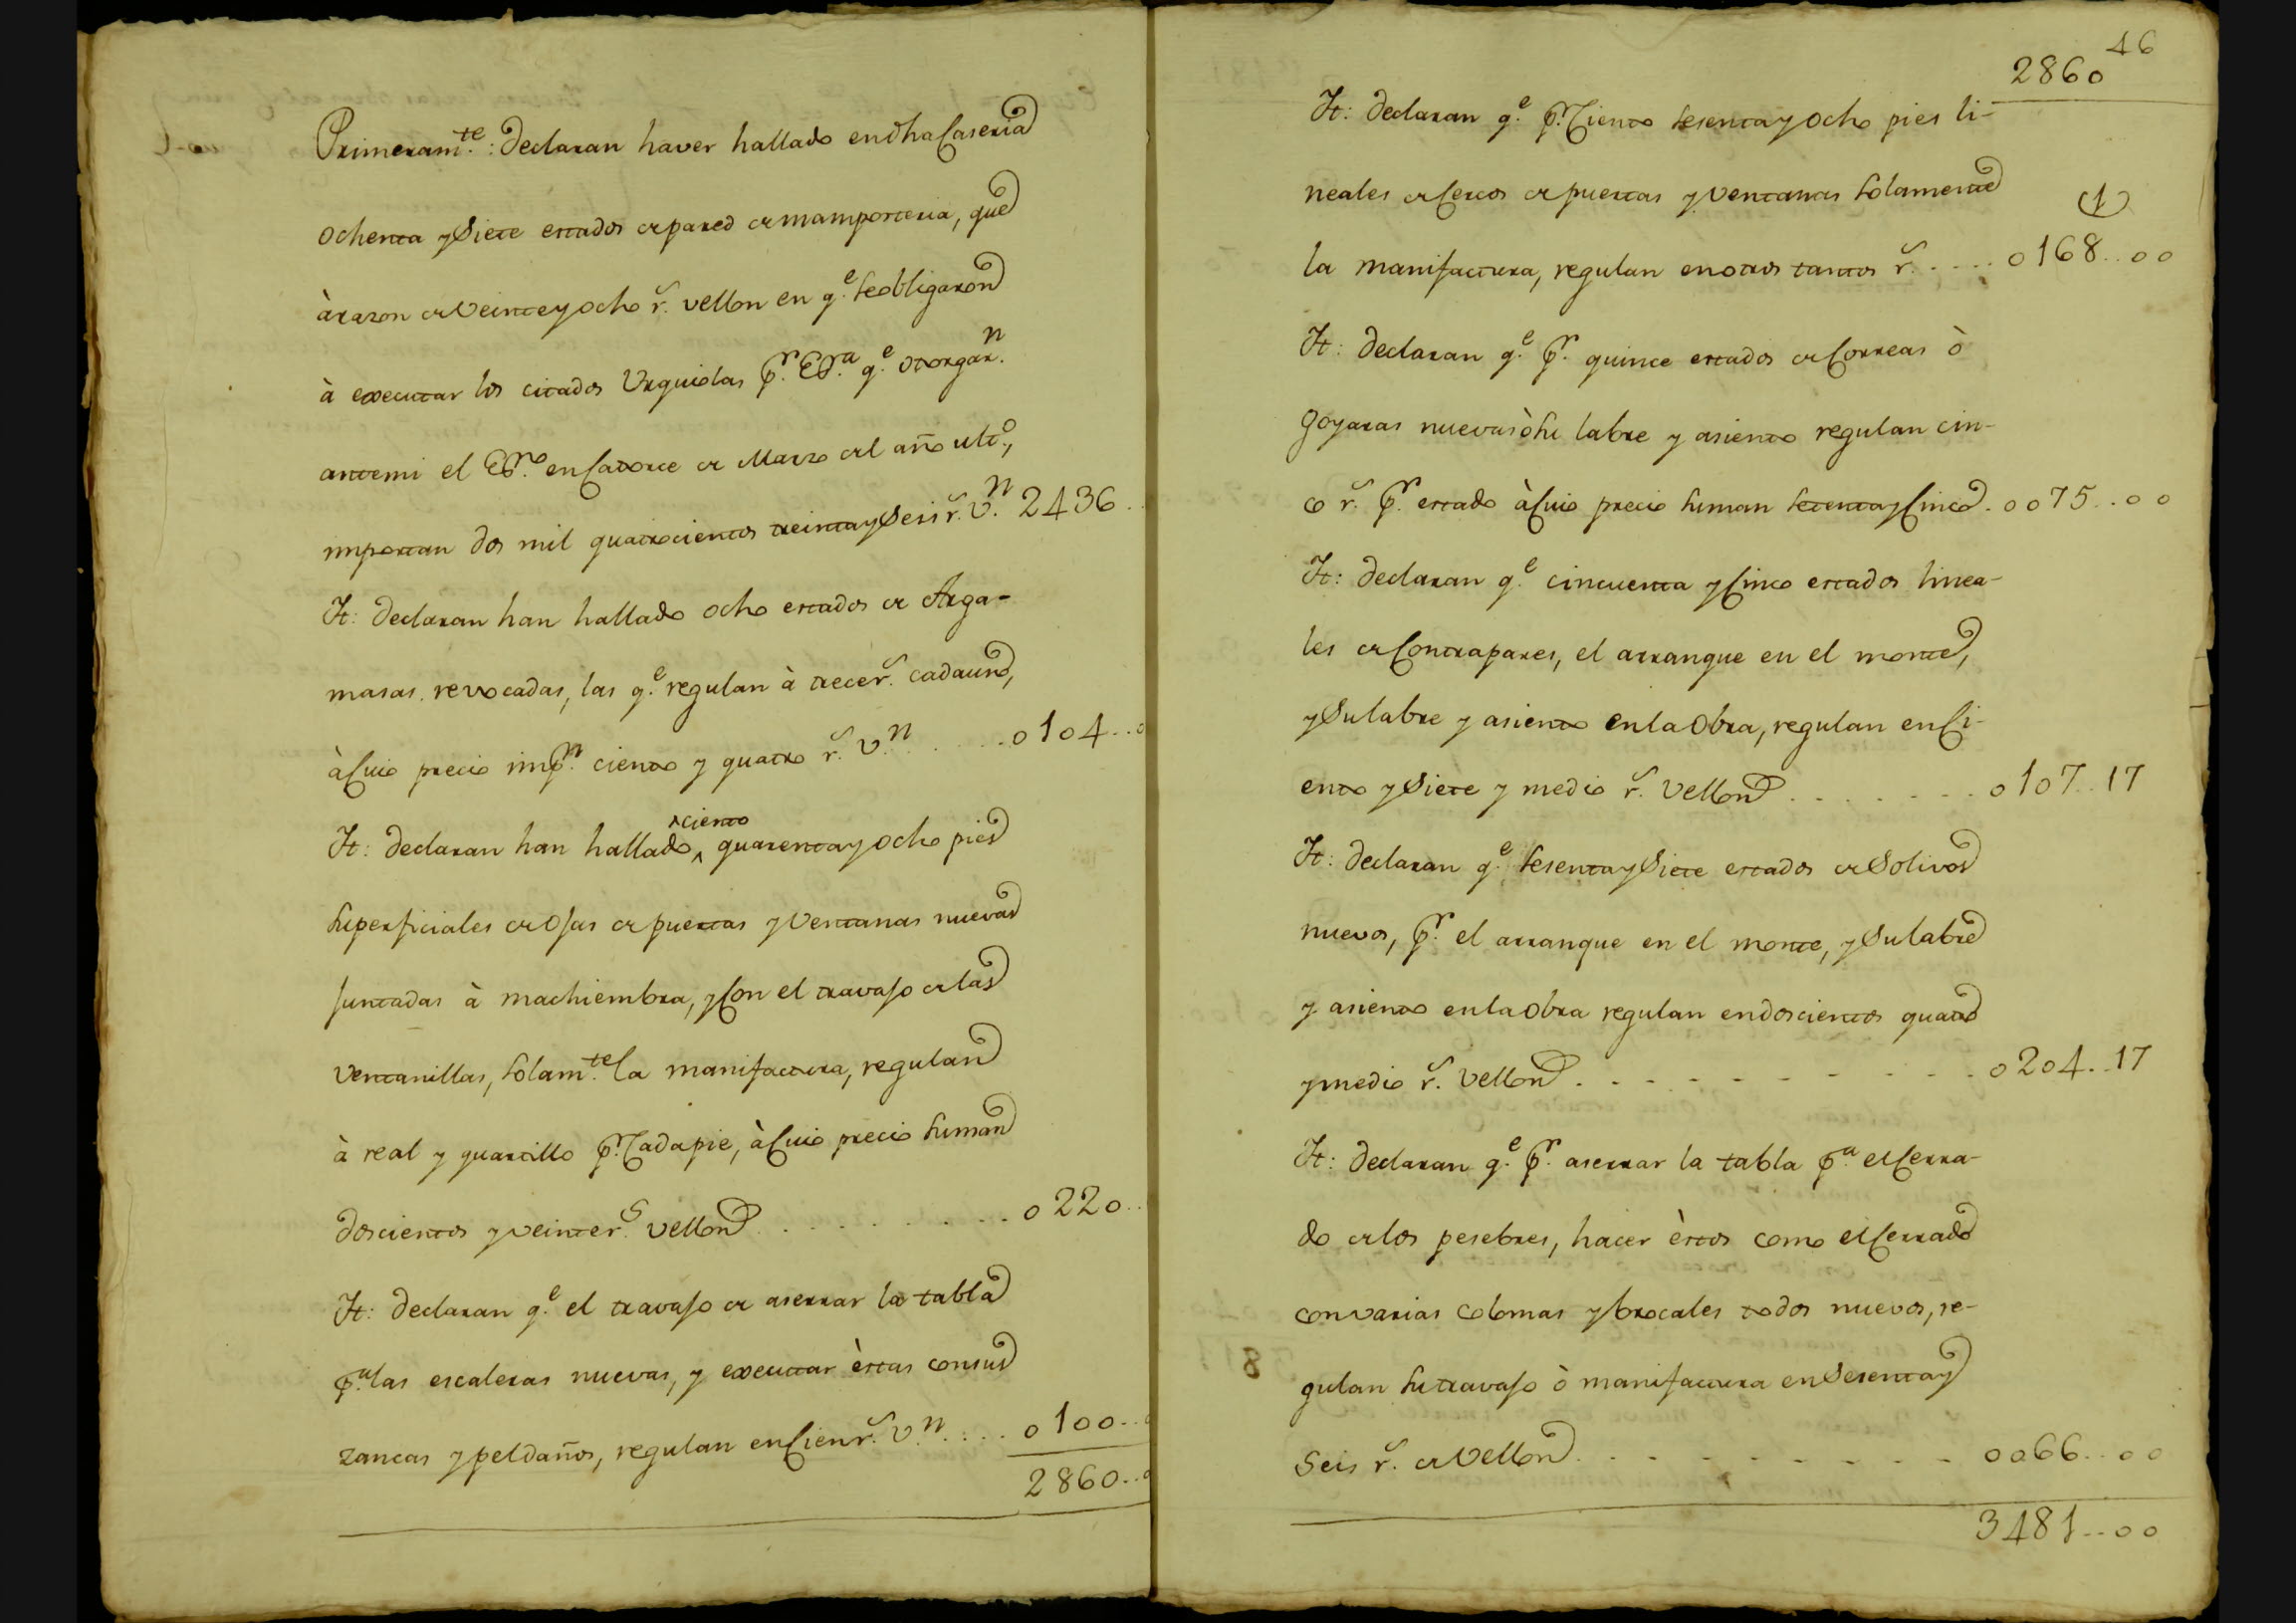 Primeram.te: Declaran haver hallado en dha Caseria
ochenta y Siete estados de pared de mamposteria, que
à razon de Veinte y ocho r.s vellon en q.e se obligaron
à executar los citados Urquiolas p.r Es.ra q.e otorgar.n
ante mi el Es.no en Catorce de Marzo del año ult.o,
importan dos mil quatrocientos treinta y Seis r.s v.n 2436..
It: Declaran han hallado ocho estados de Arga-
masas revocadas, las q.e regulan à trece r.s cada uno,
à Cuio precio imp.n ciento y quatro r.s v.n ..... 0104..0
It: Declaran han hallado ^ciento quarenta y ocho pies
superficiales de Ojas de puertas y Ventanas nuevas
juntadas à machiembra, y Con el travajo de las
Ventanillas, solam.te la manifactura, regulan
à real y quartillo p.r Cada pie, à Cuio precio suman
doscientos y veinte r.s vellon ......... 0220..
It: Declaran q.e el travajo de aserrar la tabla
p.a las escaleras nuevas, y executar èstas con sus
zancas y peldaños, regulan en Cien r.s v.n .... 0100..0
2860..0
46
2860
It: Declaran q.e p.r Ciento sesenta y Ocho pies li-
neales de Cercos de puertas y Ventanas solamente
la manifactura, regulan en otros tantos r.s .... 0168..00
It: Declaran q.e p.r quince estados de Correas ò
Goyaras nuevas ò su labre y asiento regulan cin-
co r.s p.r estado à Cuio precio suman setenta y Cinco. 0075..00
It: Declaran q.e cincuenta y Cinco estados linea-
les de Contrapares, el arranque en el monte,
y Su labre y asiento en la Obra, regulan en Ci-
ento y Siete y medio r.s Vellon ........ 0107..17
It: Declaran q.e sesenta y Siete estados de Solivos
nuevos, p.r el arranque en el monte, y Su labre
y asiento en la Obra regulan en doscientos quatro
y medio r.s Vellon .......... 0204..17
It: Declaran q.e p.r aserrar la tabla p.a el Cerra-
do de los pesebres, hacer èstos como el Cerrado
con varias colomas y brocales todos nuevos, re-
gulan su travajo ò manifactura en Sesenta y
Seis r.s de Vellon .......... 0066..00
3481..00